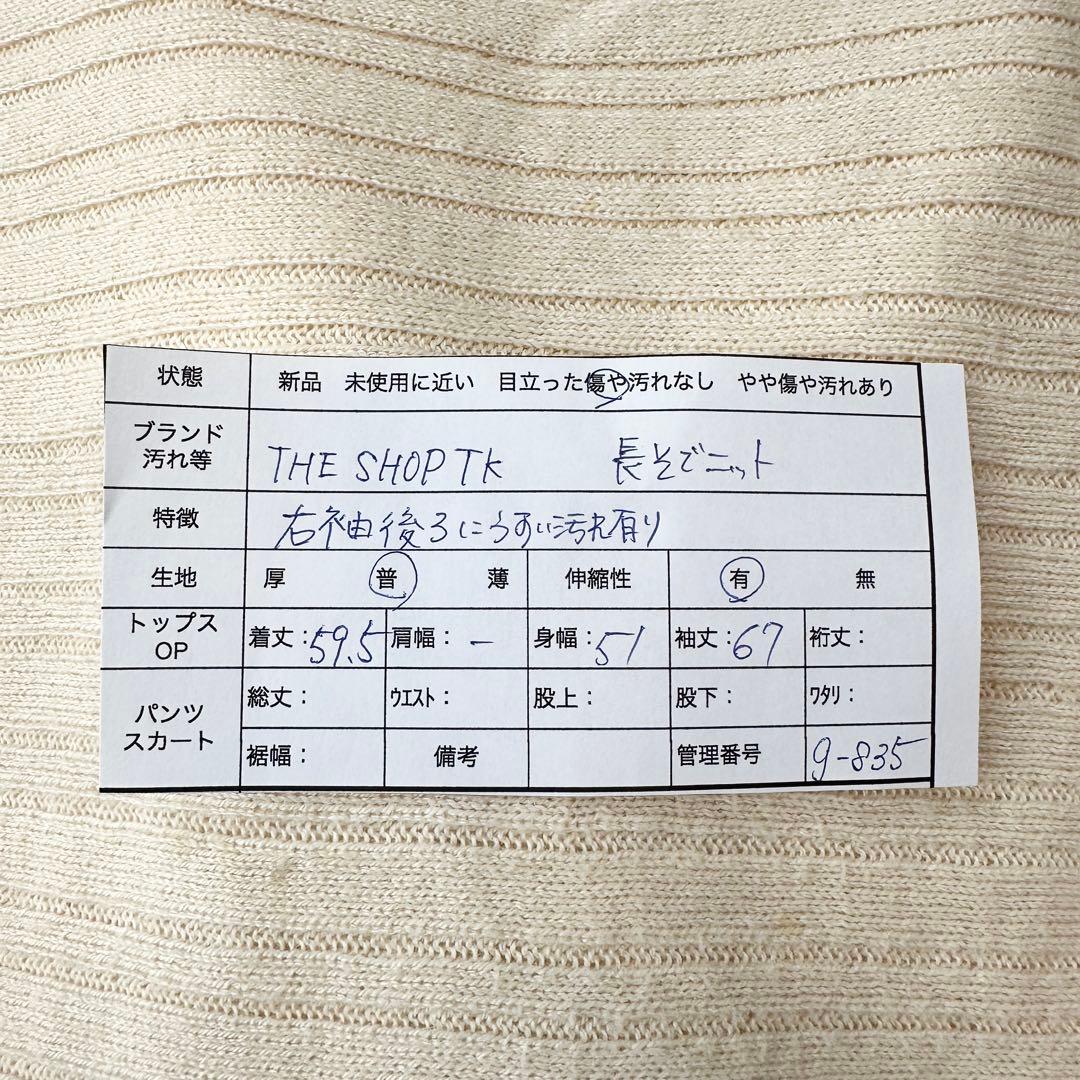 状態 新品 未使用に近い 目立った傷や汚れなし やや傷や汚れあり
ブランド
汚れ等 THE SHOP TK 長そでニット
特徴 右袖後ろにうすい汚れ有り
生地 厚 普 薄 伸縮性 有 無
トップス
OP 着丈:59.5 肩幅:- 身幅:51 袖丈:67 裄丈:
パンツ
スカート 総丈: ウエスト: 股上: 股下: ワタリ:
裾幅: 備考 管理番号 g-835